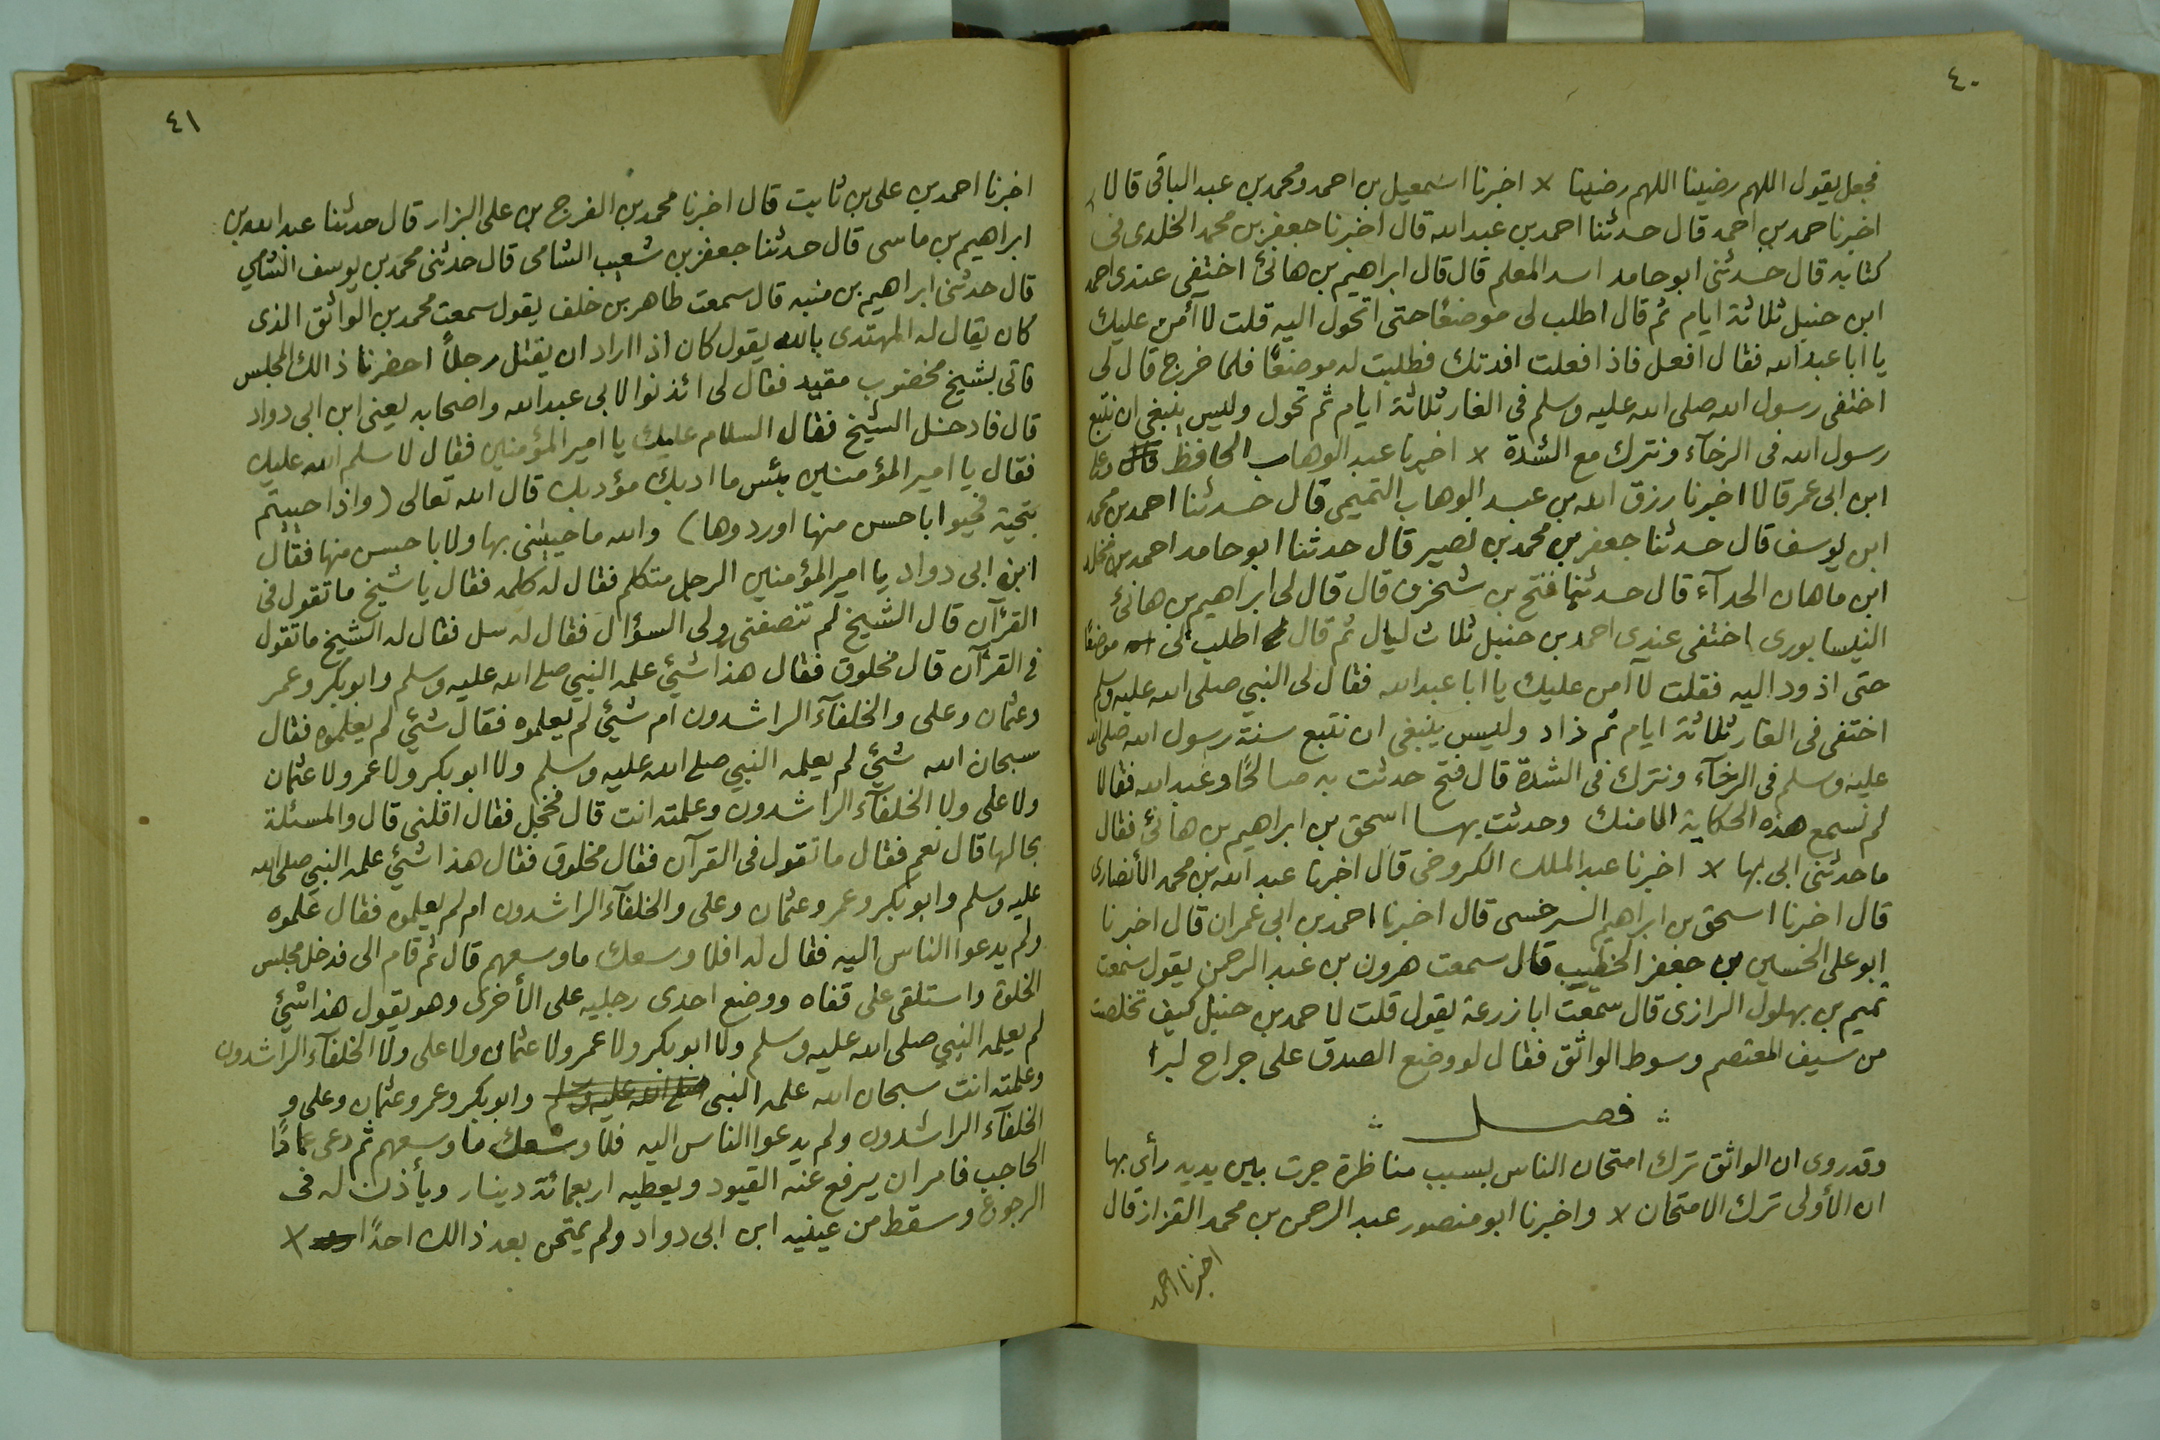 ٤٠
فجعل يقول اللهم رضينا اللهم رضينا × اخبرنا اسمعيل بن احمد ومحمد بن عبد الباقى قالا
اخبرنا حمد بن احمد قال حدثنا احمد بن عبد الله قال اخبرنا جعفر بن محمد الخلدى فى
كتابه قال حدثنى ابو حامد اسد المعلم قال قال ابراهيم بن هانئ اختفى عندى احمد
ابن حنبل ثلاثة ايام ثم قال اطلب لى موضعًا حتى اتحول اليه قلت لا آمن عليك
يا ابا عبد الله فقال افعل فاذا فعلت افدتك فطلبت له موضعًا فلما خرج قال لى
اختفى رسول الله صلى الله عليه وسلم فى الغار ثلاثة ايام ثم تحول وليس ينبغى ان نتبع
رسول الله فى الرخآء ونترك مع الشدة × اخبرنا عبد الوهاب الحافظ
ابن ابى عمر قالا اخبرنا رزق الله بن عبد الوهاب التميمى قال حدثنا احمد بن محمد
ابن يوسف قال حدثنا جعفر بن محمد بن نصير قال حدثنا ابو حامد احمد بن مخلد
ابن ماهان الحدآء قال حدثنا فتح بن شخرف قال قال لى ابراهيم بن هانئ
النيسابورى اختفى عندى احمد بن حنبل ثلاث ليال ثم قال اطلب لى موضعًا
حتى اذود اليه فقلت لا آمن عليك يا ابا عبد الله فقال لى النبي صلى الله عليه وسلم
اختفى فى الغار ثلاثة ايام ثم ذاد وليس ينبغى ان نتبع سنة رسول الله صلى الله
عليه وسلم فى الرخآء ونترك فى الشدة قال فتح حدثت به صالحًا وعبد الله فقالا
لم نسمع هذه الحكاية الا منك وحدثت بها اسحق بن ابراهيم بن هانئ فقال
ما حدثنى ابى بها × اخبرنا عبد الملك الكروخى قال اخبرنا عبد الله بن محمد الأنصارى
قال اخبرنا اسحق بن ابراهيم السرخسى قال اخبرنا احمد بن ابى عمران قال اخبرنا
ابو على الحسين بن جعفر الخطيب قال سمعت هرون بن عبد الرحمن يقول سمعت
تميم بن بهلول الرازى قال سمعت ابا زرعة يقول قلت لاحمد بن حنبل كيف تخلصت
من سيف المعتصم وسوط الواثق فقال لو وضع الصدق على جراح لبرا
فصل
وقد روى ان الواثق ترك امتحان الناس بسبب مناظرة جرت بين يديه رأى بها
ان الأولى ترك الامتحان × واخبرنا ابو منصور عبد الرحمن بن محمد القزاز قال
اخبرنا احمد
٤١
اخبرنا احمد بن على بن ثابت قال اخبرنا محمد بن الفرج بن على البزار قال حدثنا عبد الله بن
ابراهيم بن ماسى قال حدثنا جعفر بن شعيب الشامى قال حدثنى محمد بن يوسف الشامي
قال حدثنى ابراهيم بن منبه قال سمعت طاهر بن خلف يقول سمعت محمد بن الواثق الذى
كان يقال له المهتدى بالله يقول كان اذا اراد ان يقتل رجلاً احضرنا ذالك المجلس
فاتى بشيخ مخضوب مقيد فقال لى ائذنوا لابى عبد الله واصحابه يعنى ابن ابى دواد
قال فادخل الشيخ فقال السلام عليك يا امير المؤمنين فقال لا سلم الله عليك
فقال يا امير المؤمنين بئس ما ادبك مؤدبك قال الله تعالى (واذا حييتم
بتحية فحيوا باحسن منها اوردوها) والله ما حييتنى بها ولا باحسن منها فقال
ابن ابى دواد يا امير المؤمنين الرجل متكلم فقال له كلمه فقال يا شيخ ما تقول فى
القرآن قال الشيخ لم تنصفنى ولى السؤال فقال له سل فقال له الشيخ ما تقول
فى القرآن قال مخلوق فقال هذا شيئ علمه النبي صلى الله عليه وسلم وابو بكر وعمر
وعثمان وعلى والخلفآء الراشدون ام شيئ لم يعلموه فقال شيئ لم يعلموه فقال
سبحان الله شيئ لم يعلمه النبي صلى الله عليه وسلم ولا ابو بكر ولا عمر ولا عثمان
ولا على ولا الخلفآء الراشدون وعلمته انت قال فخجل فقال اقلنى قال والمسئلة
بحالها قال نعم فقال ما تقول فى القرآن فقال مخلوق فقال هذا شيئ علمه النبي صلى الله
عليه وسلم وابو بكر وعمر وعثمان وعلى والخلفآء الراشدون ام لم يعلموه فقال علموه
ولم يدعوا الناس اليه فقال له افلا وسعك ما وسعهم قال ثم قام الى فدخل مجلس
الخلوة واستلقى على قفاه ووضع احدى رجليه على الأخرى وهو يقول هذا شيئ
لم يعلمه النبي صلى الله عليه وسلم ولا ابو بكر ولا عمر ولا عثمان ولا على ولا الخلفآء الراشدون
وعلمته انت سبحان الله علمه النبى صلى الله عليه وسلم وابو بكر وعمر وعثمان وعلى و
الخلفآء الراشدون ولم يدعوا الناس اليه فلا وسعك ما وسعهم ثم دعى عمادًا
الحاجب فامر ان يرفع عنه القيود ويعطيه اربعمائة دينار ويأذن له فى
الرجوع وسقط من عينيه ابن ابى دواد ولم يمتحن بعد ذالك احدًا ×